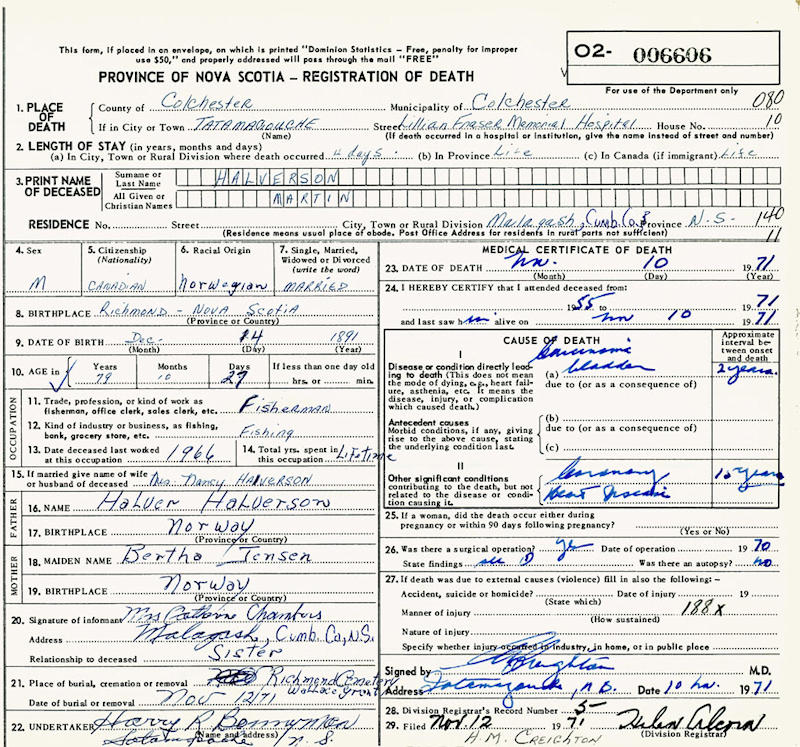 This form, if placed in an envelope, on which is printed "Dominion Statistics – Free, penalty for improper
use $50," and properly addressed will pass through the mail "FREE"
PROVINCE OF NOVA SCOTIA – REGISTRATION OF DEATH
O2- 006606
For use of the Department only
1. PLACE OF DEATH
County of Colchester Municipality of Colchester 080
If in City or Town TATAMAGOUCHE Street Lillian Fraser Memorial Hospital House No. 10
(Name) (If death occurred in a hospital or institution, give the name instead of street and number)
2. LENGTH OF STAY (in years, months and days)
(a) In City, Town or Rural Division where death occurred 4 days. (b) In Province Life (c) In Canada (if immigrant) Life
3. PRINT NAME OF DECEASED
Surname or Last Name HALVERSON
All Given or Christian Names MARTIN
RESIDENCE No. Street City, Town or Rural Division Malagash, Cumb. Co. Province N.S. 140
(Residence means usual place of abode. Post Office Address for residents in rural parts not sufficient) 11
4. Sex
M
5. Citizenship
(Nationality)
CANADIAN
6. Racial Origin
Norwegian
7. Single, Married, Widowed or Divorced
(write the word)
MARRIED
8. BIRTHPLACE Richmond - Nova Scotia
(Province or Country)
9. DATE OF BIRTH Dec. 14 1891
(Month) (Day) (Year)
10. AGE in
Years Months Days If less than one day old
79 10 27 hrs. or min.
OCCUPATION
11. Trade, profession, or kind of work as
fisherman, office clerk, sales clerk, etc. Fisherman
12. Kind of industry or business, as fishing,
bank, grocery store, etc. Fishing
13. Date deceased last worked
at this occupation 1966
14. Total yrs. spent in
this occupation Lifetime
15. If married give name of wife
or husband of deceased Mrs. Nancy HALVERSON
FATHER
16. NAME Halver Halverson
17. BIRTHPLACE Norway
(Province or Country)
MOTHER
18. MAIDEN NAME Bertha Jensen
19. BIRTHPLACE Norway
(Province or Country)
20. Signature of informant Mrs Chambers
Address Malagash, Cumb. Co, N.S.
Relationship to deceased Sister
21. Place of burial, cremation or removal Richmond Cemetery
Wallace Grant
Date of burial or removal Nov 12/71
22. UNDERTAKER Harry R
(Name and address)
Tatamagouche N.S.
MEDICAL CERTIFICATE OF DEATH
23. DATE OF DEATH Nov. 10 1971
(Month) (Day) (Year)
24. I HEREBY CERTIFY that I attended deceased from:
1955 71
and last saw him alive on Nov 10 1971
CAUSE OF DEATH
Approximate interval between onset and death
I
Disease or condition directly leading to death (This does not mean the mode of dying, e.g., heart failure, asthenia, etc. It means the disease, injury, or complication which caused death.)
Carcinoma
(a) bladder 2 years.
due to (or as a consequence of)
Antecedent causes
Morbid conditions, if any, giving rise to the above cause, stating the underlying condition last.
(b)
due to (or as a consequence of)
(c)
II
Other significant conditions
contributing to the death, but not related to the disease or condition causing it.
Coronary years
Heart Disease
25. If a woman, did the death occur either during
pregnancy or within 90 days following pregnancy?
(Yes or No)
26. Was there a surgical operation? yes Date of operation 1970
State findings see Was there an autopsy? no
27. If death was due to external causes (violence) fill in also the following –
Accident, suicide or homicide? Date of injury 19
(State which)
Manner of injury 188x
(How sustained)
Nature of injury
Specify whether injury occurred in industry, in home, or in public place
Signed by Creighton M.D.
Address Tatamagouche, N.S. Date 10 Nov. 1971
28. Division Registrar's Record Number 5
29. Filed Nov. 12 1971
(Division Registrar)
H.M. CREIGHTON